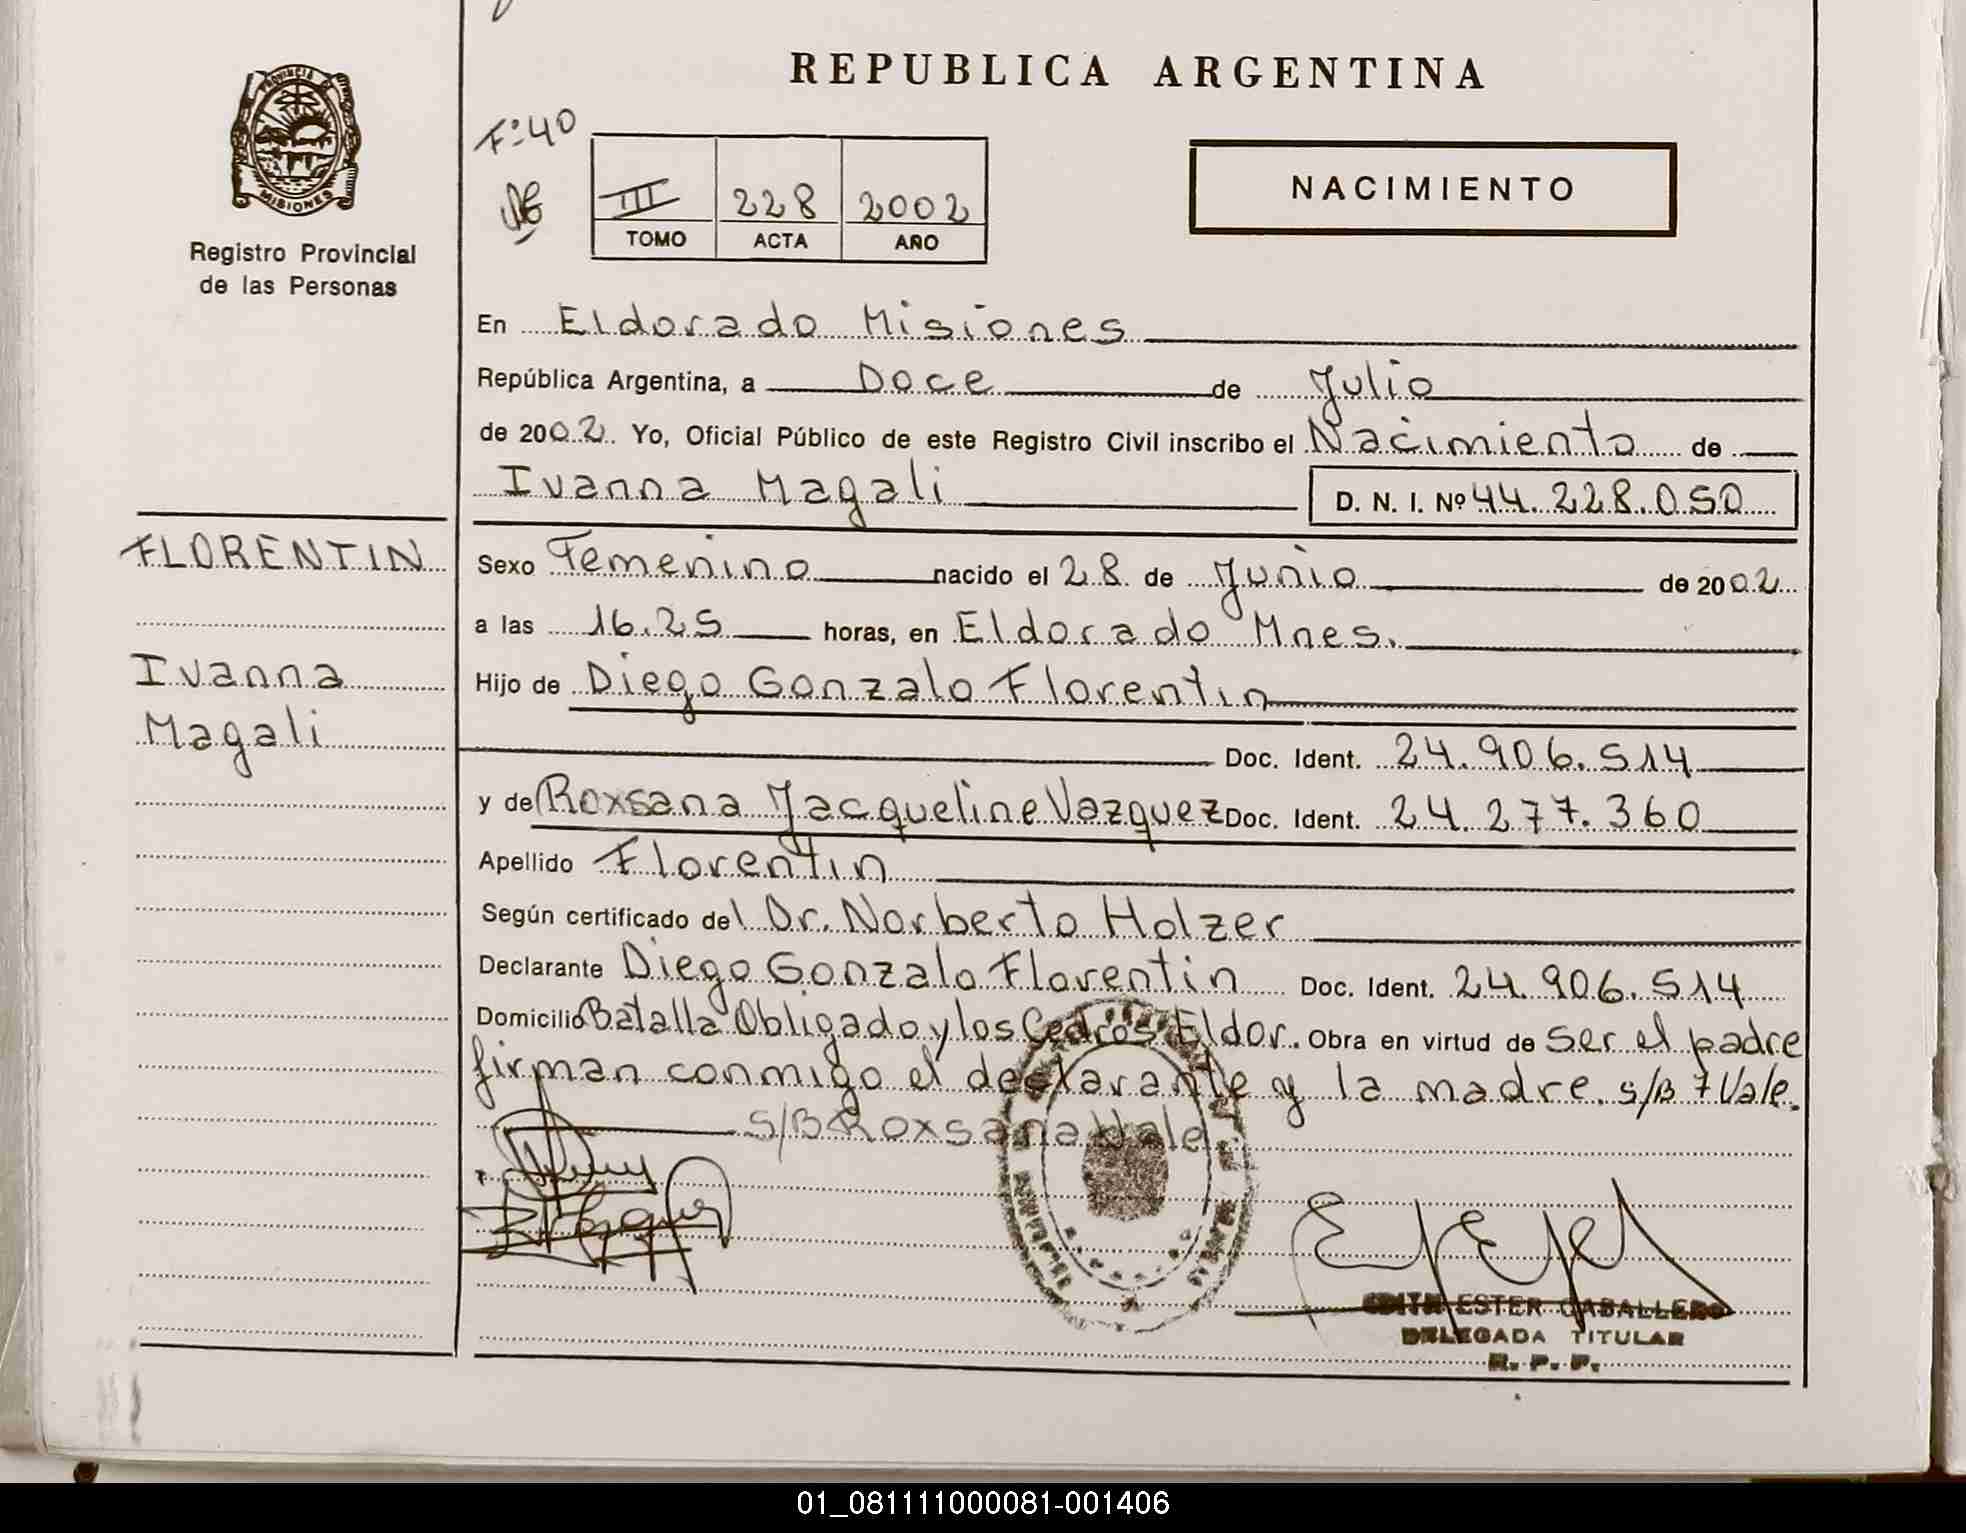 REPUBLICA ARGENTINA
PROVINCIA DE
MISIONES
Registro Provincial
de las Personas
Fº 40
III 228 2002
TOMO ACTA AÑO
NACIMIENTO
En Eldorado Misiones
República Argentina, a Doce de Julio
de 2002. Yo, Oficial Público de este Registro Civil inscribo el Nacimiento de
Ivanna Magali D. N. I. Nº 44.228.050
FLORENTIN
Ivanna
Magali
Sexo Femenino nacido el 28 de Junio de 2002
a las 16.25 horas, en Eldorado Mnes.
Hijo de Diego Gonzalo Florentin
Doc. Ident. 24.906.514
y de Roxsana Jacqueline Vazquez Doc. Ident. 24.277.360
Apellido Florentin
Según certificado del Dr. Norberto Holzer
Declarante Diego Gonzalo Florentin Doc. Ident. 24.906.514
Domicilio Batalla Obligado y los Cedros Eldor. Obra en virtud de ser el padre
firman conmigo el declarante y la madre. s/B 7 Vale.
S/B Roxsana Vale
EDITH ESTER CABALLERO
DELEGADA TITULAR
R. P. P.
01_081111000081-001406